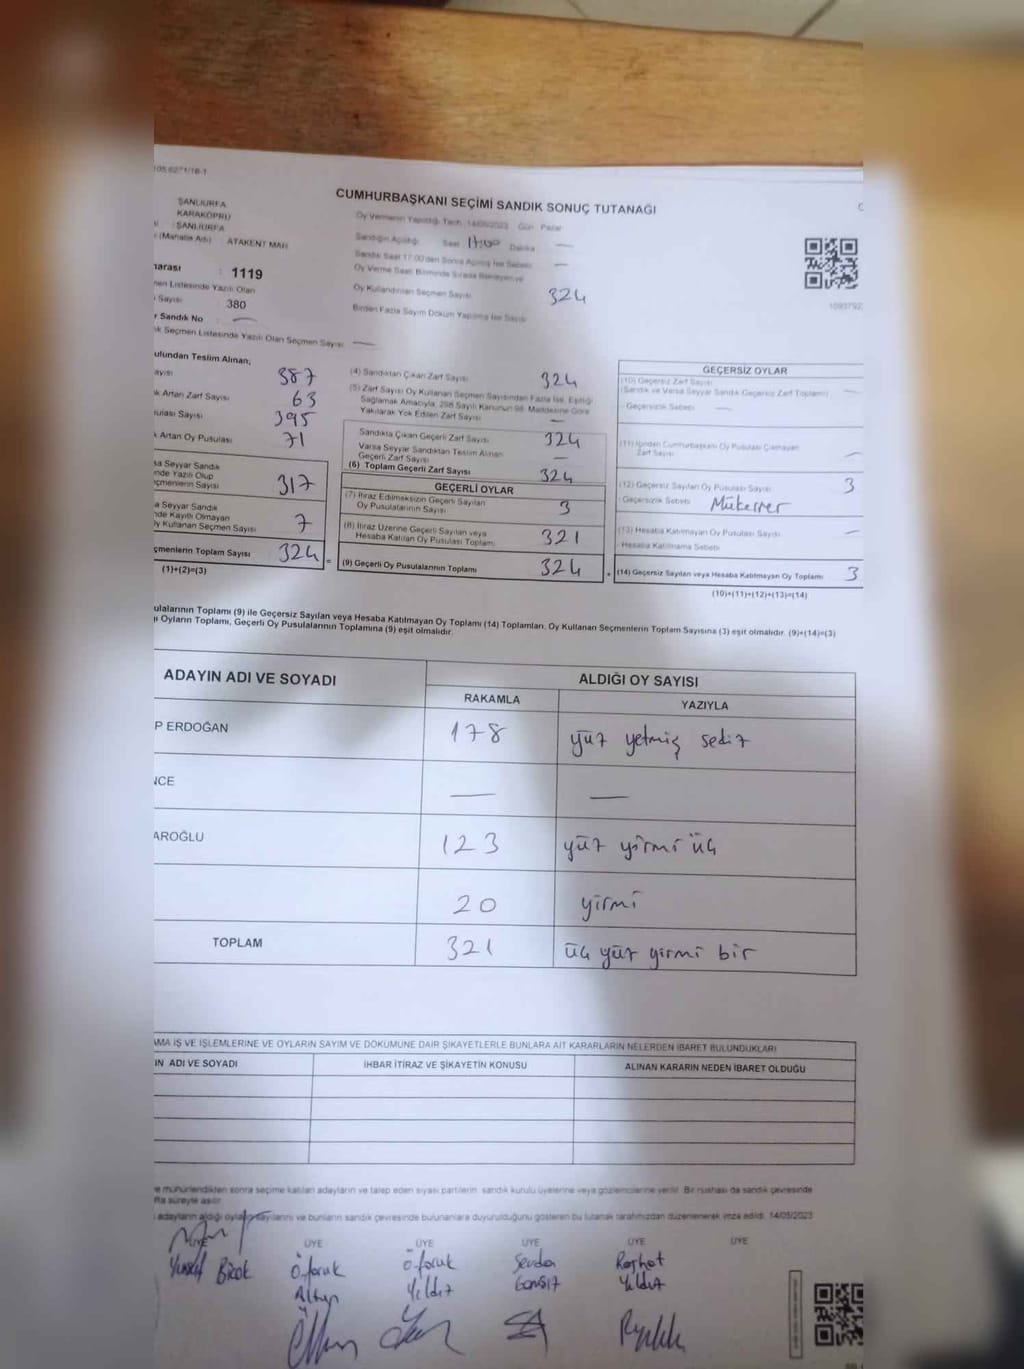 CUMHURBAŞKANI SEÇİMİ SANDIK SONUÇ TUTANAĞI
ŞANLIURFA
KARAKÖPRÜ
ŞANLIURFA
(Mahalle Adı) ATAKENT MAH.
Oy Vermenin Yapıldığı Tarih 14/05/2023 Gün Pazar
Sandığın Açıldığı Saat 17:00 Dakika —
Sandık Saat 17:00'den Sonra Açılmış İse Sebebi —
Oy Verme Saati Bitiminde Sırada Bekleyen ve
Oy Kullandırılan Seçmen Sayısı 324
Birden Fazla Sayım Döküm Yapılmış İse Sayısı
arası : 1119
men Listesinde Yazılı Olan
Sayısı : 380
r Sandık No —
k Seçmen Listesinde Yazılı Olan Seçmen Sayısı —
ulundan Teslim Alınan,
ayısı 387
k Artan Zarf Sayısı 63
usulası Sayısı 395
k Artan Oy Pusulası 71
sa Seyyar Sandık
nde Yazılı Olup
çmenlerin Sayısı 317
a Seyyar Sandık
nde Kayıtlı Olmayan
y Kullanan Seçmen Sayısı 7
çmenlerin Toplam Sayısı 324
(1)+(2)=(3)
(4) Sandıktan Çıkan Zarf Sayısı 324
(5) Zarf Sayısı Oy Kullanan Seçmen Sayısından Fazla İse, Eşitliği
Sağlamak Amacıyla, 298 Sayılı Kanunun 98. Maddesine Göre
Yakılarak Yok Edilen Zarf Sayısı —
Sandıkta Çıkan Geçerli Zarf Sayısı 324
Varsa Seyyar Sandıktan Teslim Alınan
Geçerli Zarf Sayısı —
(6) Toplam Geçerli Zarf Sayısı 324
GEÇERLİ OYLAR
(7) İtiraz Edilmeksizin Geçerli Sayılan
Oy Pusulalarının Sayısı 3
(8) İtiraz Üzerine Geçerli Sayılan veya
Hesaba Katılan Oy Pusulası Toplamı 321
(9) Geçerli Oy Pusulalarının Toplamı 324
GEÇERSİZ OYLAR
(10) Geçersiz Zarf Sayısı
(Sandık ve Varsa Seyyar Sandık Geçersiz Zarf Toplamı) —
Geçersizlik Sebebi —
(11) İçinden Cumhurbaşkanı Oy Pusulası Çıkmayan
Zarf Sayısı —
(12) Geçersiz Sayılan Oy Pusulası Sayısı 3
Geçersizlik Sebebi Mükerrer
(13) Hesaba Katılmayan Oy Pusulası Sayısı —
Hesaba Katılmama Sebebi
(14) Geçersiz Sayılan veya Hesaba Katılmayan Oy Toplamı 3
(10)+(11)+(12)+(13)=(14)
ulalarının Toplamı (9) ile Geçersiz Sayılan veya Hesaba Katılmayan Oy Toplamı (14) Toplamları, Oy Kullanan Seçmenlerin Toplam Sayısına (3) eşit olmalıdır. (9)+(14)=(3)
ı Oyların Toplamı, Geçerli Oy Pusulalarının Toplamına (9) eşit olmalıdır.
ADAYIN ADI VE SOYADI ALDIĞI OY SAYISI
RAKAMLA YAZIYLA
P ERDOĞAN 178 yüz yetmiş sekiz
NCE — —
AROĞLU 123 yüz yirmi üç
20 yirmi
TOPLAM 321 üç yüz yirmi bir
AMA İŞ VE İŞLEMLERİNE VE OYLARIN SAYIM VE DÖKÜMÜNE DAİR ŞİKAYETLERLE BUNLARA AİT KARARLARIN NELERDEN İBARET BULUNDUKLARI
IN ADI VE SOYADI İHBAR İTİRAZ VE ŞİKAYETİN KONUSU ALINAN KARARIN NEDEN İBARET OLDUĞU
e mühürlendikten sonra seçime katılan adayların ve talep eden siyasi partilerin sandık kurulu üyelerine veya gözlemcilerine verilir. Bir nüshası da sandık çevresinde
fta süreyle asılır.
adayların aldığı oyla sayılarını ve bunların sandık çevresinde bulunanlara duyurulduğunu gösteren bu tutanak tarafımızdan düzenlenerek imza edildi. 14/05/2023
ÜYE ÜYE ÜYE ÜYE ÜYE ÜYE
Yusuf Bicok Ö.faruk Ö.faruk Sevda
Yıldız Yıldız